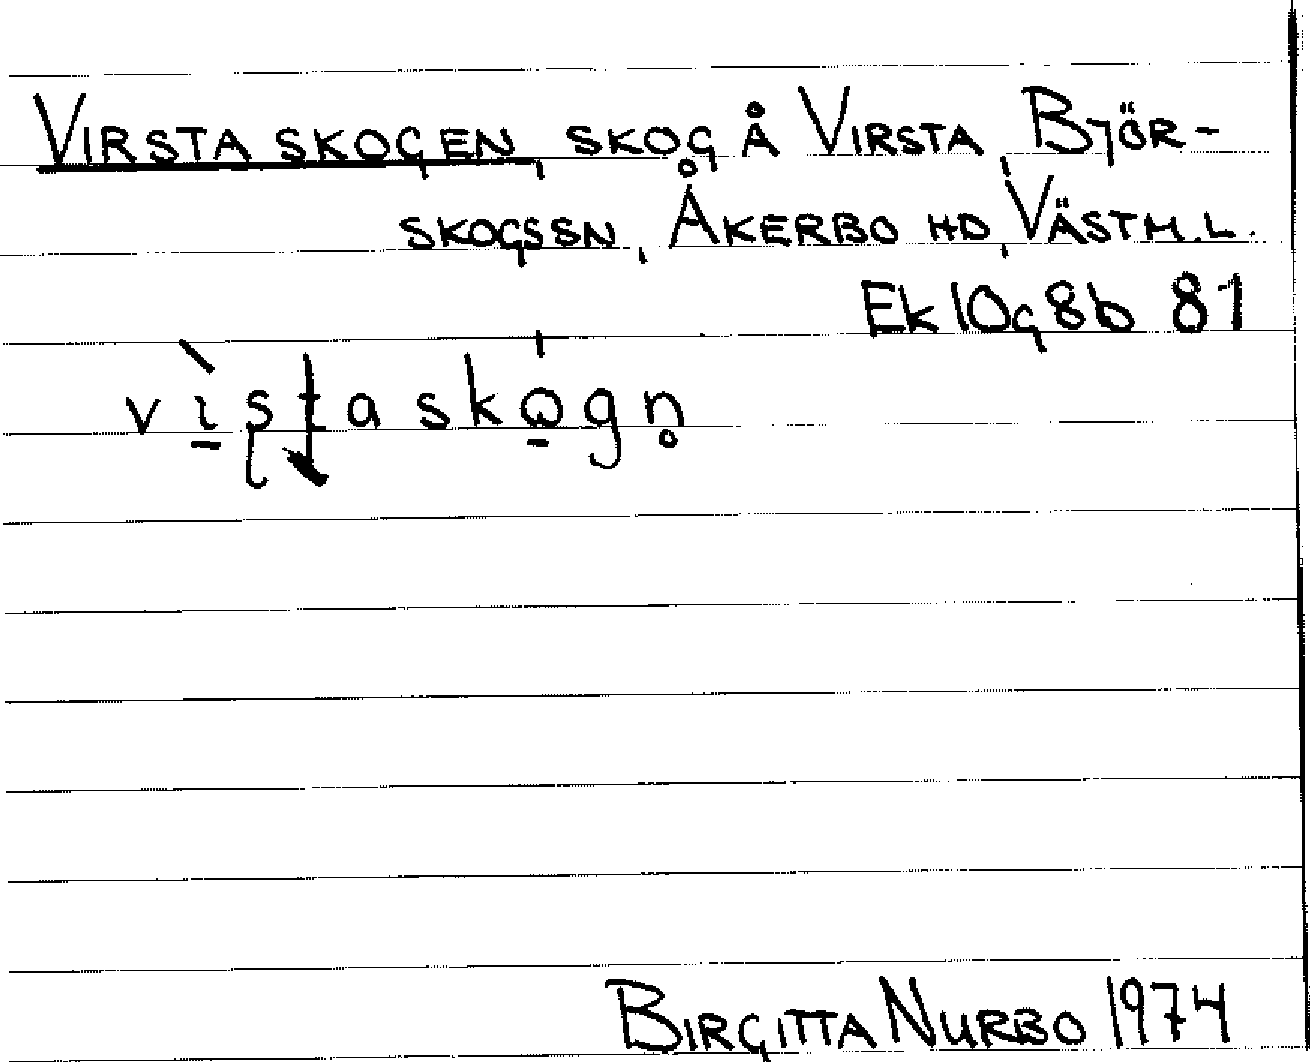 VIRSTASKOGEN, SKOG Å VIRSTA, BJÖR-
SKOGSSN, ÅKERBO HD, VÄSTM.L.
Ek 10g8b 81
vìstaskógn̥
BIRGITTA NURBO 1974